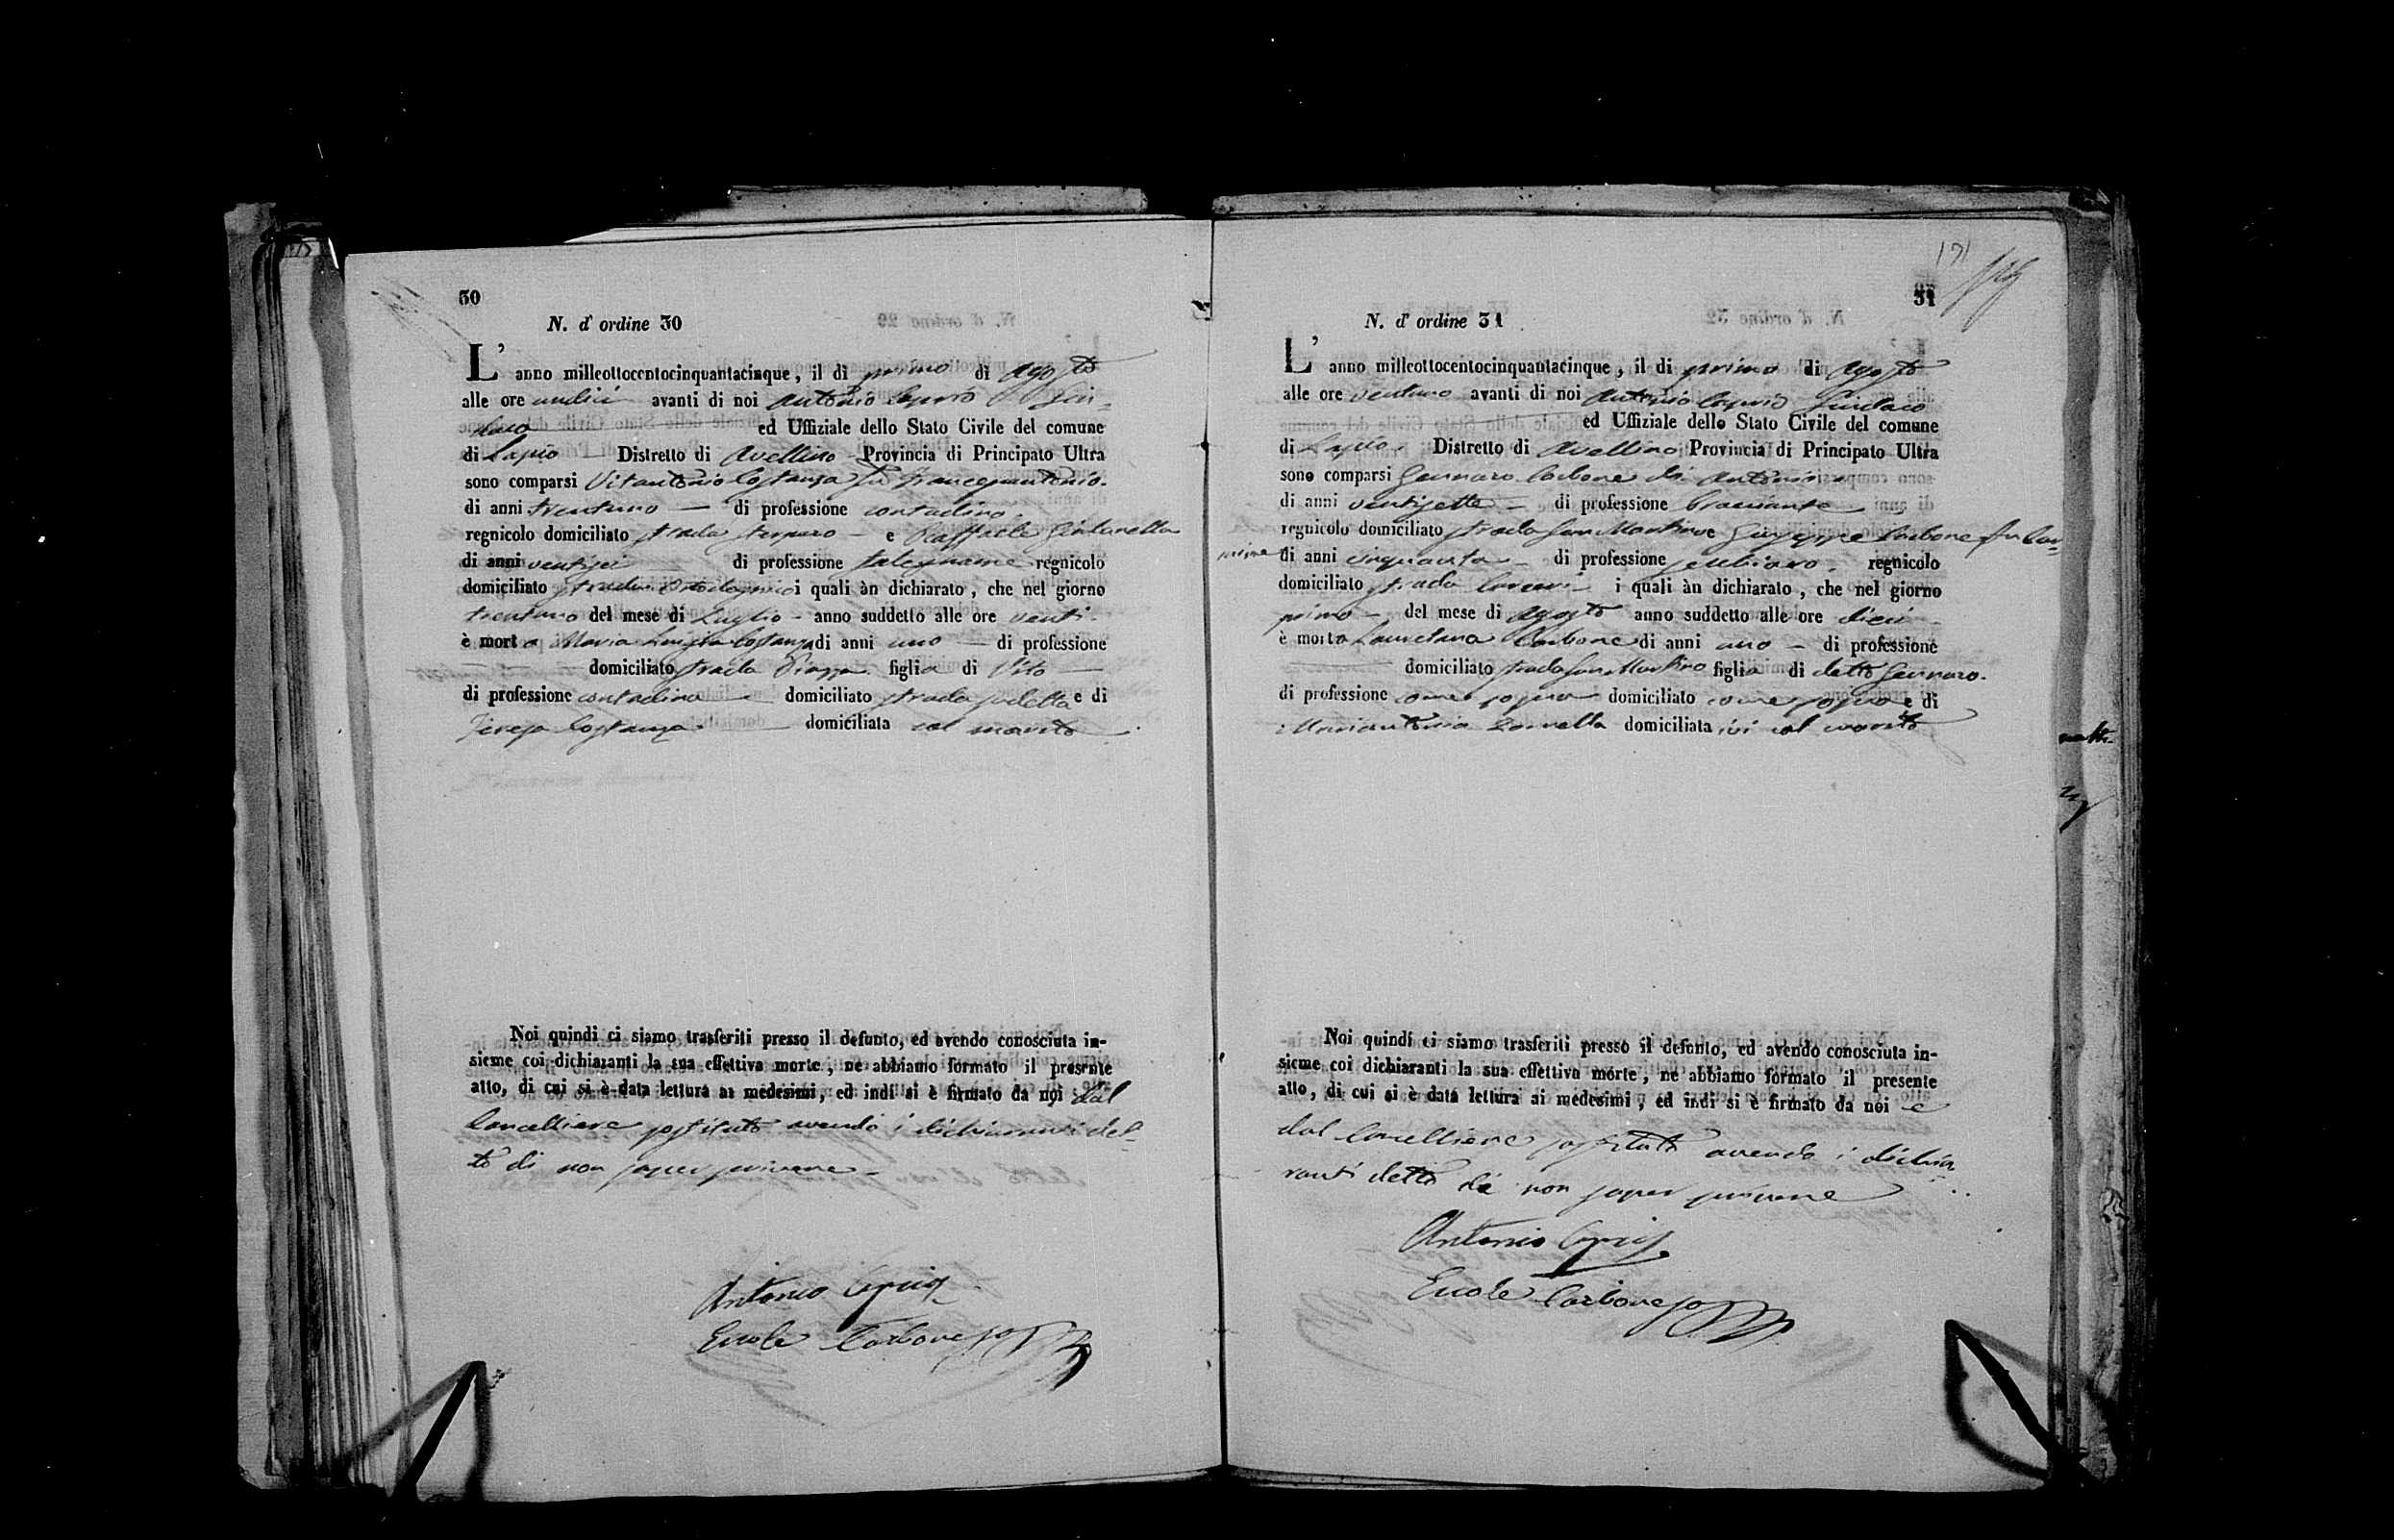 30
N. d' ordine 30
L' anno milleottocentocinquantacinque, il di primo di Agosto
alle ore undici avanti di noi Antonio Caprio Sin-
daco ed Uffiziale dello Stato Civile del comune
di Lapio Distretto di Avellino Provincia di Principato Ultra
sono comparsi Vitantonio Costanza fu Francescantonio
di anni trentuno di professione contadino
regnicolo domiciliato strada e Raffaele
di anni ventisei di professione falegname regnicolo
domiciliato strada i quali àn dichiarato, che nel giorno
trentuno del mese di Luglio anno suddetto alle ore venti
è morta Maria Luigia Costanza di anni uno di professione
domiciliato strada Piazza figlia di Vito
di professione contadino domiciliato strada sudetta e di
Teresa Costanza domiciliata col marito
Noi quindi ci siamo trasferiti presso il defunto, ed avendo conosciuta in-
sieme coi dichiaranti la sua effettiva morte, ne abbiamo formato il presente
atto, di cui si è data lettura ai medesimi, ed indi si è firmato da noi e dal
Cancelliere sostituto avendo i dichiaranti det-
to di non saper scrivere
Antonio Caprio
Ercole Carbone
171
31
N. d' ordine 31
L' anno milleottocentocinquantacinque, il di primo di Agosto
alle ore ventuno avanti di noi Antonio Caprio Sindaco
ed Uffiziale dello Stato Civile del comune
di Lapio Distretto di Avellino Provincia di Principato Ultra
sono comparsi Gennaro Carbone di Antonio
di anni ventisette di professione bracciante
regnicolo domiciliato strada San Martino e Giuseppe Carbone fu Car-
mine di anni cinquanta di professione regnicolo
domiciliato strada i quali àn dichiarato, che nel giorno
primo del mese di Agosto anno suddetto alle ore dieci
è morta Lauretana Carbone di anni uno di professione
domiciliato strada San Martino figlia di detto Gennaro
di professione come sopra domiciliato come sopra e di
Mariantonia domiciliata ivi col marito
Noi quindi ci siamo trasferiti presso il defunto, ed avendo conosciuta in-
sieme coi dichiaranti la sua effettiva morte, ne abbiamo formato il presente
atto, di cui si è data lettura ai medesimi, ed indi si è firmato da noi e
dal Cancelliere sostituto avendo i dichia-
ranti detto di non saper scrivere
Antonio Caprio
Ercole Carbone